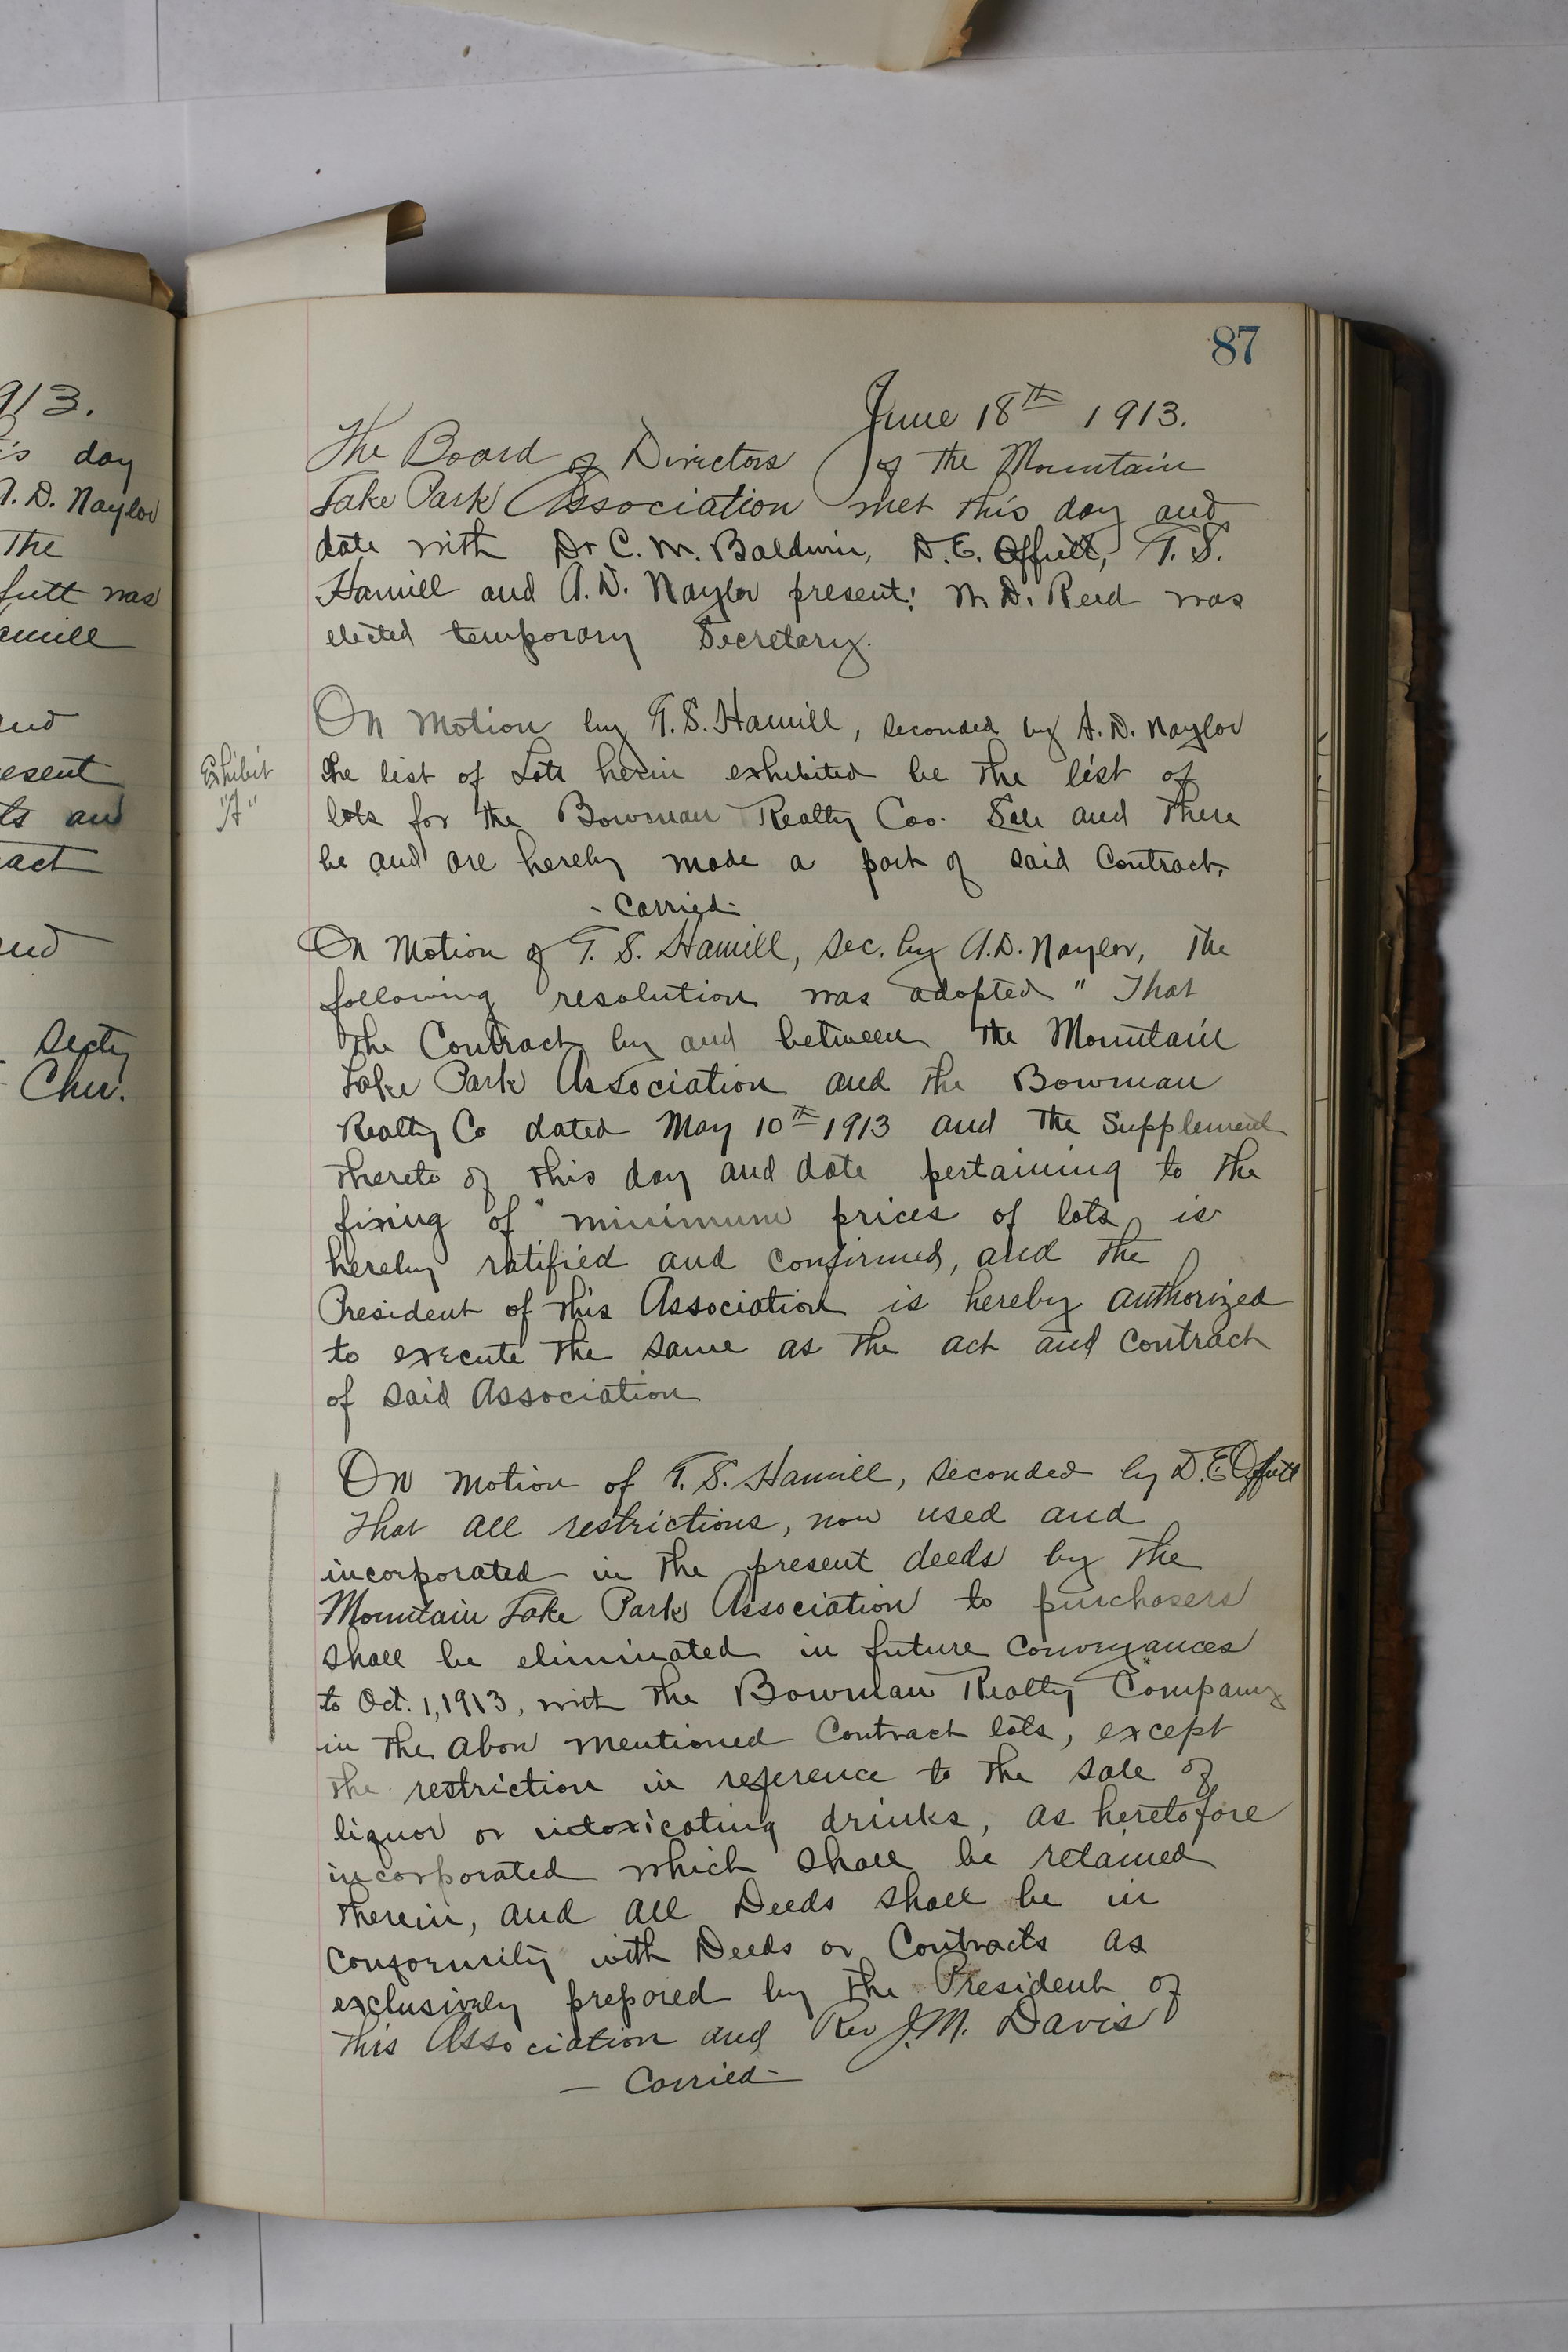 913.
is day
A. D. Naylor
The
futt was
amill
and
esent
ts and
act
and
Secty
Chu.
87
June 18th 1913.
The Board of Directors of the Mountain
Lake Park Association met this day and
date with Dr C. M. Baldwin, D. E. Offutt, T. S.
Hamill and A. D. Naylor present: M D. Reed was
elected temporary Secretary.
On Motion by T. S. Hamill, seconded by A. D. Naylor
Exhibit
"A"
the list of Lots herein exhibited be the list of
lots for the Bowman Realty Coo. Sale and there
be and are hereby made a part of said Contract.
- Carried -
On Motion of T. S. Hamill, sec. by A. D. Naylor, the
following resolution was adopted " That
the Contract by and between the Mountain
Lake Park Association and the Bowman
Realty Co dated May 10th 1913 and the Supplement
thereto of this day and date pertaining to the
fixing of minimum prices of lots is
hereby ratified and confirmed, and the
President of this Association is hereby authorized
to execute the same as the act and contract
of said Association
On Motion of T. S. Hamill, seconded by D. E. Offutt
That all restrictions, now used and
incorporated in the present deeds by the
Mountain Lake Park Association to purchasers
shall be eliminated in future conveyances
to Oct. 1, 1913, with the Bowman Realty Company
in the above mentioned Contract lots, except
the restriction in reference to the sale of
liquor or intoxicating drinks, as heretofore
incorporated which shall be retained
therein, and all Deeds shall be in
conformity with Deeds or Contracts as
exclusively prepared by the President of
this Association and Rev J. M. Davis
- Carried -